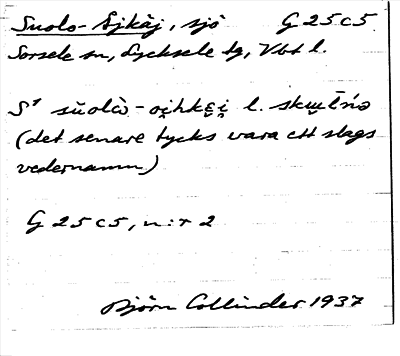 Suolo-Ojkåj, sjö G 25 c 5
Sorsele sn, Lycksele tg, Vbt l.
S¹ sŭolò-oi̯hkęi̯ l.
(det senare tycks vara ett slags
vedernamn)
G 25 c 5, n:r 2
Björn Collinder 1937